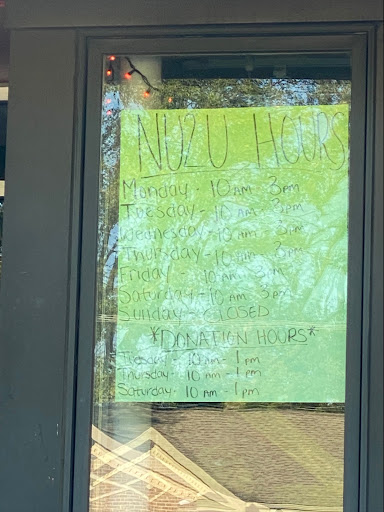 NU2U HOURS
Monday - 10 AM - 3pm
Tuesday - 10 AM - 3pm
Wednesday - 10 AM - 3pm
Thursday - 10 AM - 3pm
Friday - 10 AM - 3pm
Saturday - 10 AM - 3pm
Sunday - CLOSED
*DONATION HOURS*
Tuesday - 10 AM - 1pm
Thursday - 10 AM - 1pm
Saturday - 10 AM - 1pm